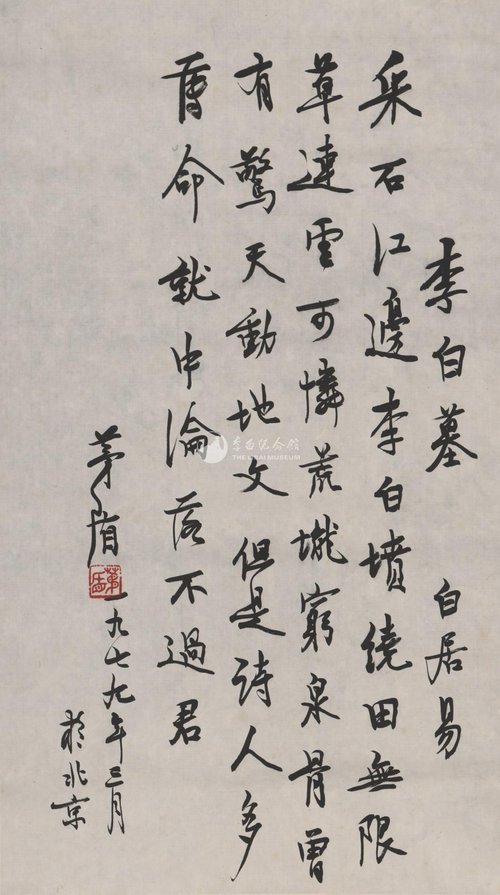 李白墓 白居易
采石江邊李白墳繞田無限
草連雲可憐荒壠窮泉骨曾
有驚天動地文但是詩人多
薄命就中淪落不過君
茅盾
茅盾
一九七九年三月
於北京
李白纪念馆
THE LIBAI MUSEUM